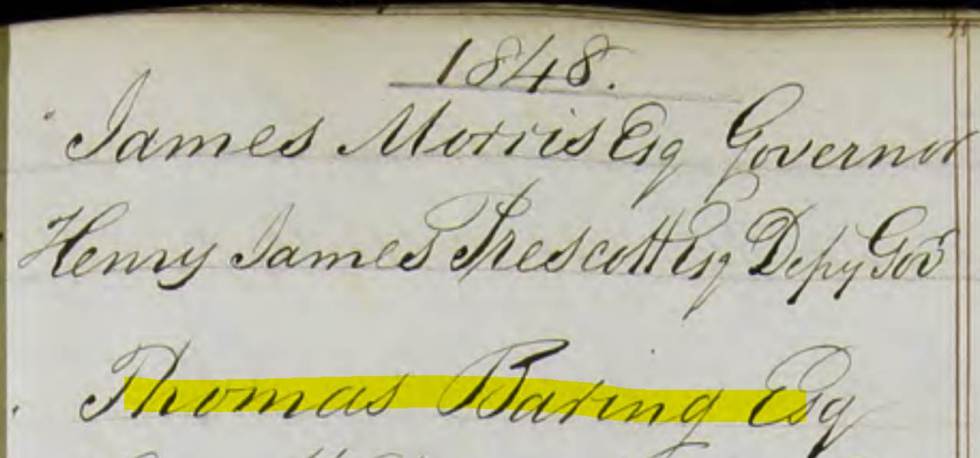 1848.
James Morris Esq Governor
Henry James Prescott Esq Depy Govr
Thomas Baring Esq